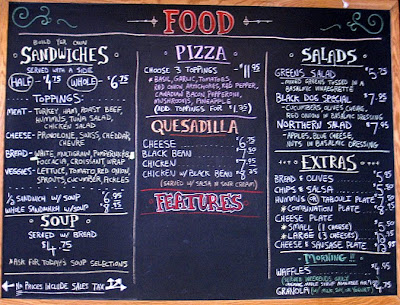 FOOD
BUILD YER OWN
SANDWICHES
SERVED WITH A SIDE
HALF - $4.75 WHOLE - $6.75
TOPPINGS:
MEAT- TURKEY, HAM, ROAST BEEF,
HUMMUS, TUNA SALAD,
CHICKEN SALAD
CHEESE- PROVOLONE, SWISS, CHEDDAR,
CHEVRE
BREAD- WHITE, MULTIGRAIN, PUMPERNICKEL
FOCACCIA, CROISSANT, WRAP
VEGGIES- LETTUCE, TOMATO, RED ONION,
SPROUTS, CUCUMBER, PICKLES
1/2 SANDWICH W/ SOUP 6.95
WHOLE SANDWICH W/ SOUP 8.75
SOUP
SERVED W/ BREAD
$4.75
*ASK FOR TODAY'S SOUP SELECTIONS
NO PRICES INCLUDE SALES TAX
PIZZA
CHOOSE 3 TOPPINGS - $11.95
* BASIL, GARLIC, TOMATOES,
RED ONION, ARTICHOKES, RED PEPPER,
CANADIAN BACON, PEPPERONI,
MUSHROOMS, PINEAPPLE
(ADD TOPPINGS FOR $1.75)
QUESADILLA
CHEESE $6.75
BLACK BEAN 7.50
CHICKEN 7.95
CHICKEN W/ BLACK BEAN 8.75
(SERVED W/ SALSA N SOUR CREAM)
FEATURES
SALADS
GREENS SALAD $5.75
-MIXED GREENS TOSSED IN A
BALSAMIC VINEGRETTE
BLACK DOG SPECIAL $7.95
-CUCUMBERS, OLIVES, CHEVRE,
RED ONION IN BALSAMIC DRESSING
NORTHERN SALAD $7.95
-APPLES, BLUE CHEESE,
NUTS IN BALSAMIC DRESSING
EXTRAS
BREAD & OLIVES
CHIPS & SALSA
HUMMUS OR TABOULI PLATE
* COMBINATION PLATE
CHEESE PLATE
* SMALL (1 CHEESE)
* LARGE (3 CHEESES)
CHEESE & SAUSAGE PLATE
MORNING!!
WAFFLES
SERVED WEEKENDS ONLY
GRANOLA (W/ MILK, SOY, OR YOGURT)